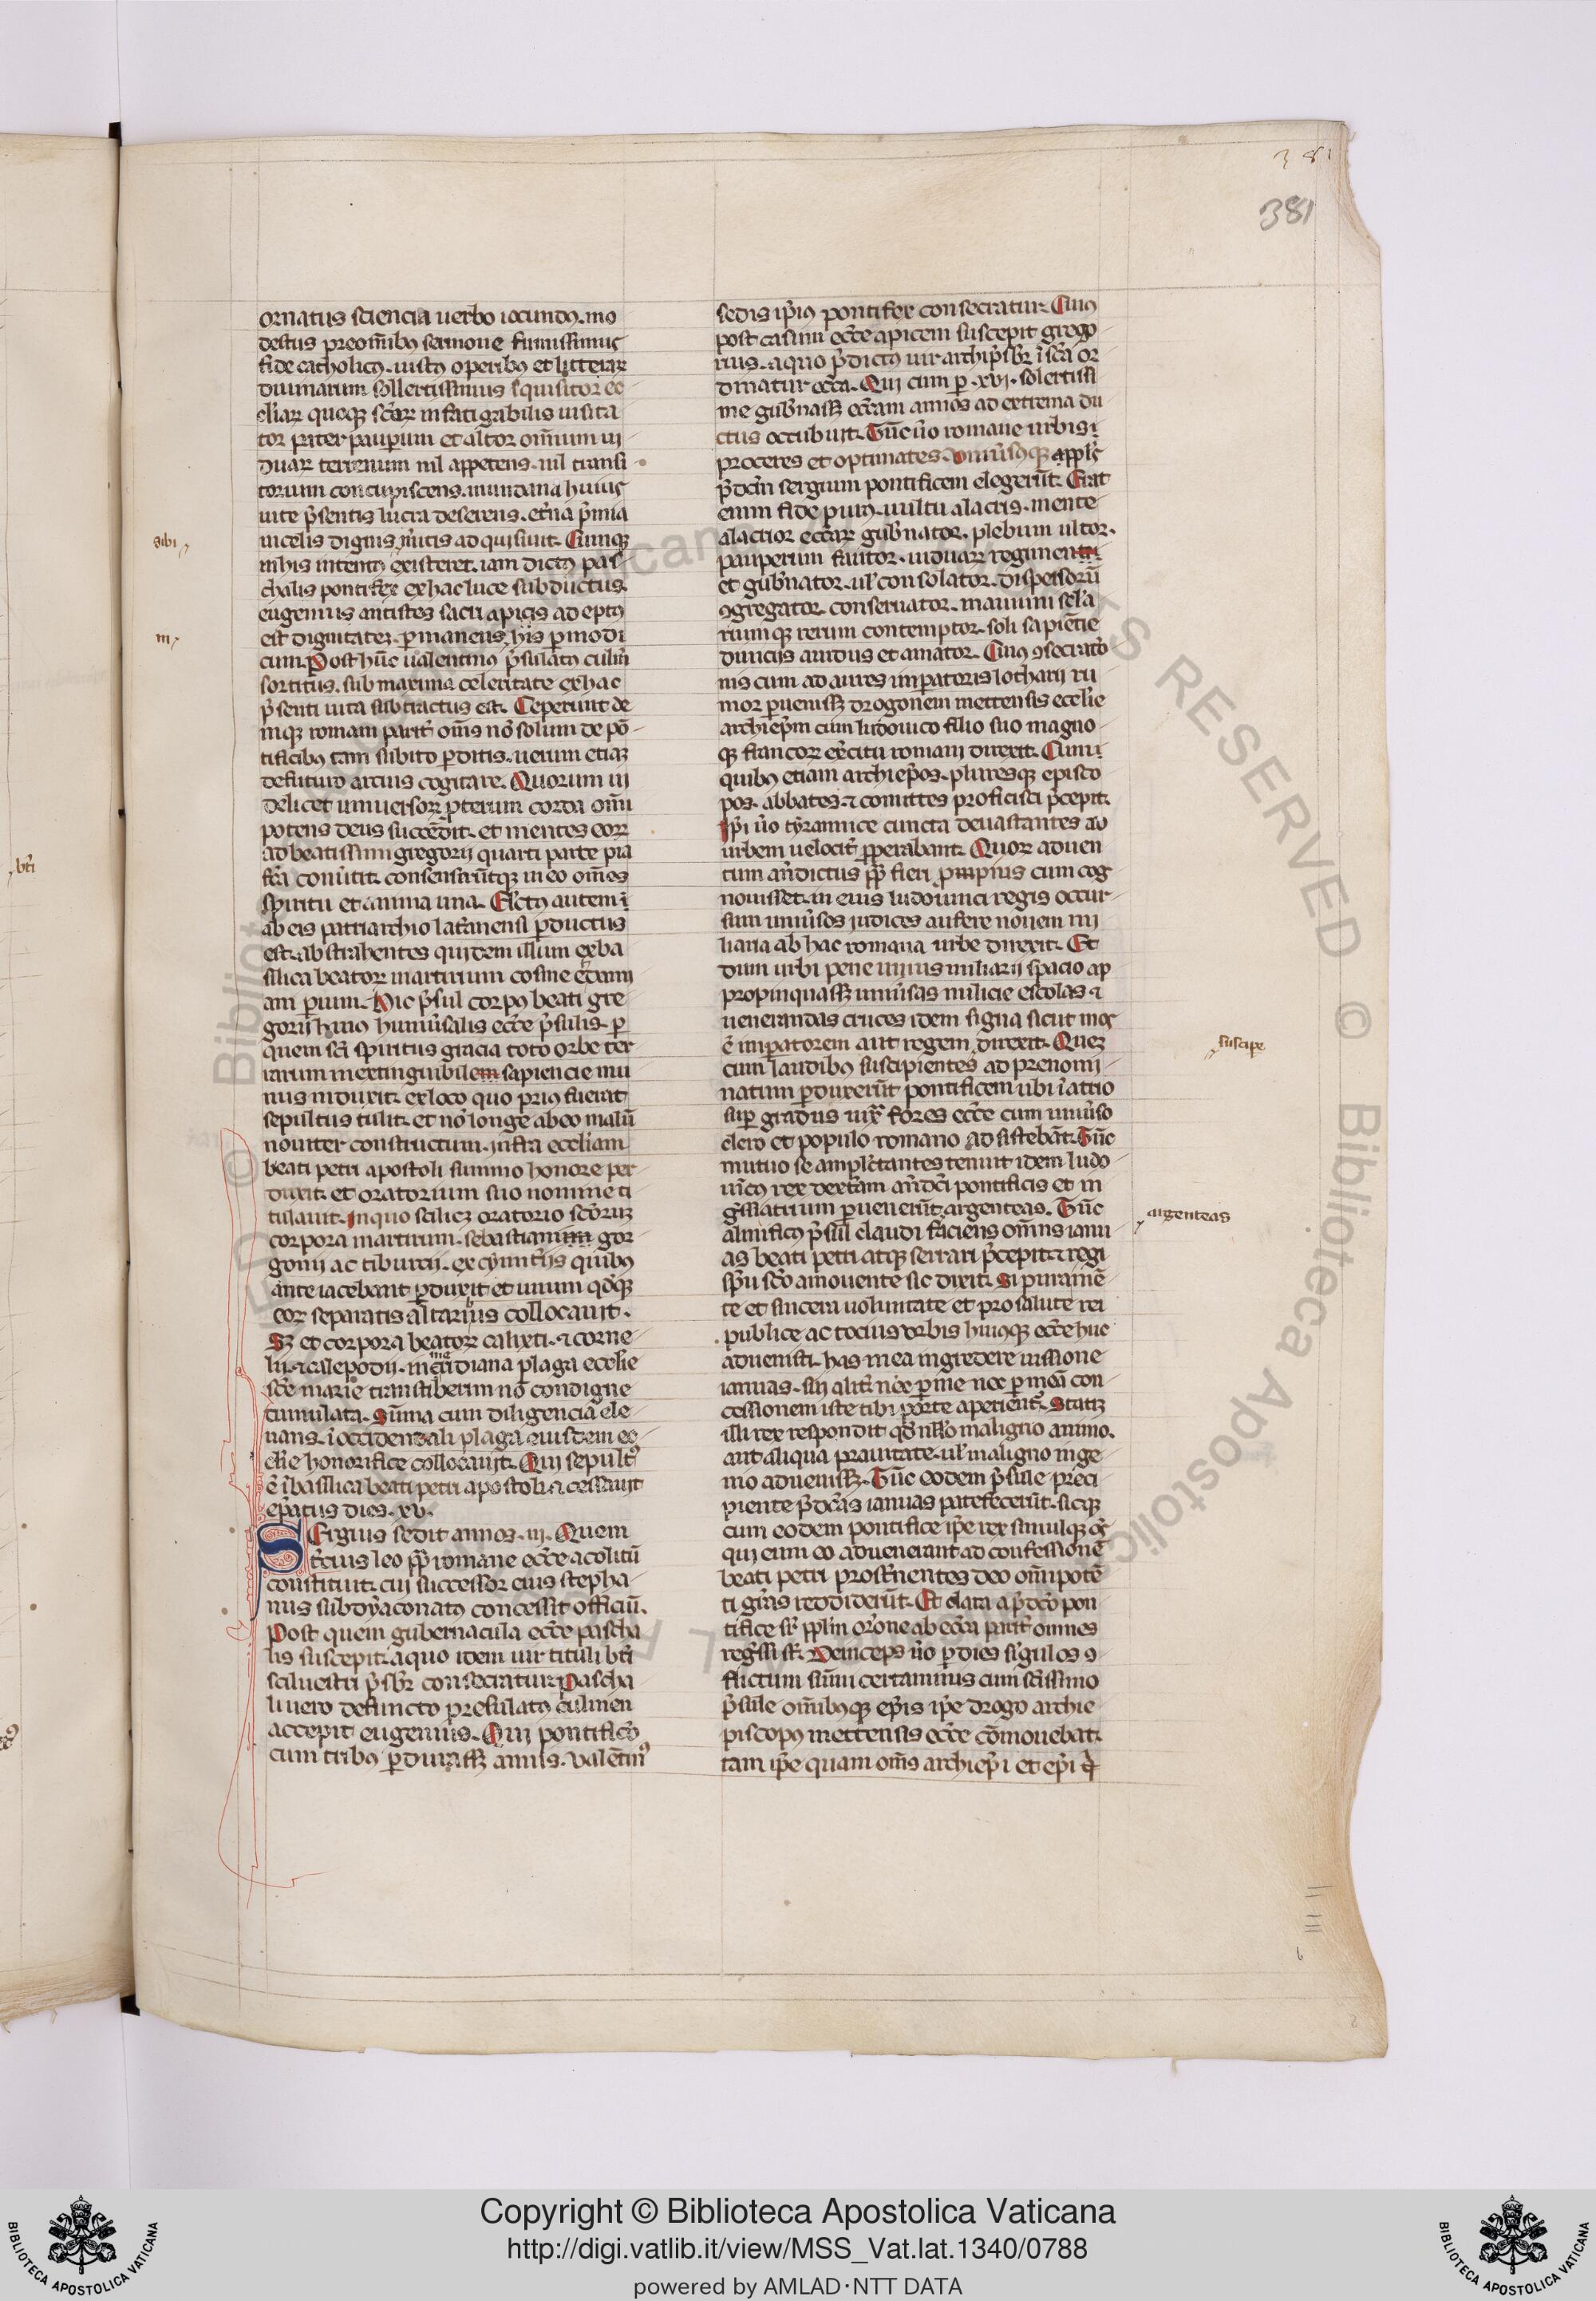 381
381
ornatus sciencia uerbo iocundꝰ. mo
destus preomībꝫ sermone firmissimus
fide catholicꝰ. iustꝰ operibꝫ et litterarꝝ
diuinarum sollertissimus īquisitor ec
cliarꝝ quoqꝫ scōrꝝ infatigabilis uisita
tor pater pauperum et altor omnium ui
duarꝝ terrenum nil appetens. nil transi
torum concupiscens. mundana huius
uite p̄sentis lucra deserens. et̄na p̄mia
in celis dignis m̄itis adquisiuit. Cumqꝫ
sibi
in his intentꝰ existeret. iam dictꝰ pas
chalis pontifex ex hac luce subductus.
eugenius antistes sacri apicis adeptꝰ
est dignitatem. ꝑmanens his ꝑmodi
in
cum. Post hūc ualentinus p̄sulatꝰ culm̄
sortitus. sub maxima celeritate ex hac
p̄senti uita subtractus est. Ceperunt de
niqꝫ romani parit̄ om̄s nō solum de pō
tificibus tam subito ꝑditis. uerum etiaꝫ
de futuro arcius cogitare. Quorum ui
delicet uniuersorꝝ p̄terum corda om̄i
potens deus succendit. et mentes eorꝝ
ad beatissimi gregorij quarti parte pia
fr̄a conūtit. consenserūtqꝫ in eo om̄es
spiritu et anima una. Elc̄tꝰ autem ī
ab eis patriarchio lat̄anensi ꝑductus
est. abstrahentes quidem illum ex ba
silica beatorꝝ martirum cosme et dami
ani pium. Hic p̄sul corpꝰ beati gre
gorij huiꝰ huniūsalis ecc̄e p̄sulis. ꝑ
quem sc̄i spiritus gracia toto orbe ter
rarum inextinguibile sapiencie mu
nus induxit. ex loco quo priꝰ fuerat
sepultus tulit. et nō longe ab eo in aliū
nouiter constructum. infra eccliam
beati petri apostoli summo honore per
duxit. et oratorium suo nomine ti
tulauit. In quo scilicꝫ oratorio sc̄orum
corpora martirum. sebastiani gor
gonij ac tiburcij. ex cymit̄ijs quibꝰ
ante iacebant ꝑduxit et unum qd̄qꝫ
eorꝝ separatis altaribus collocauit.
Sꝫ et corpora beatorꝝ calixti. ⁊ corne
lij. ⁊ calepodij. in meridiana plaga ecclie
sc̄e marie transtiberim nō condigne
tumulata. Suma cum diligencia ele
uans. ī occidentali plaga eiusdem ec
clie honorifice collocauit. Qui sepultꝰ
ē ī basilica beati petri apostoli. ⁊ cessauit
ep̄atus dies. xv.
Sergius sedit annos. iij. Quem
t̄cius leo pp̄ romane ecc̄e acolitū
constituit. cui successor eius stepha
nus subdyaconatꝰ concessit officiū.
Post quem gubernacula ecc̄e pascha
lis suscepit. a quo idem uir tituli bt̄i
siluestri p̄sbr̄ consecratur. Pascha
li uero defuncto presulatꝰ culmen
accepit eugenius. Qui pontificꝰ
cum tribꝰ ꝑduxisset annis. valentinꝰ
sedis ip̄ius pontifex consecratur. Cuiꝰ
post casum ecc̄e apicem suscepit grego
rius. a quo p̄dictꝰ uir archip̄sbr̄ ī sc̄a or
dinatur ecc̄a. Qui cum ꝑ. xvi. solertissi
me gub̄nasset ecc̄am annos ad extrema du
ctus occubuit. Tūc ūo romane urbis
proceres et optimates. uniūsꝰqꝫ appls̄
p̄dc̄m sergium pontificem elegerūt. Erat
enim fide piꝰ. uultu alacris. mente
alacrior ecc̄arꝝ gub̄nator. plebium ultor.
pauperum fautor. uiduarꝝ regimen
et gub̄nator. ul̄ consolator. dispersorū
ꝯgregator. conseruator. mauum sela
riumqꝫ rerum contemptor. soli sapiencie
diuicijs auidus et amator. Cuiꝰ ꝯsecratō
nis cum ad aures imperatoris lotharij ru
mor ꝑuenisset drogonem mettensis ecclie
archiep̄m cum ludouico filio suo magno
qꝫ francorꝝ exc̄itu romam direxit. Cum
quibꝰ etiam archiep̄os. pluresqꝫ episco
pos. abbates. ⁊ comittes proficisci p̄cepit.
Ip̄i ūo tyrannice cuncta deuastantes ad
urbem uelocit̄ ꝓperabant. Quorꝝ aduen
tum an̄dictus pp̄ fieri ꝓpius cum cog
nouisset. in eius ludouici regis occur
sum uniūsos iudices aufere nouem mi
liaria ab hac romana urbe direxit. Et
dum urbi pene unius miliarij spacio ap
propinquasset uniūsas milicie scolas ⁊
uenerandas cruces idem signa sicut mos
ē imperatorem aut regem direxit. Quem
suscipe
cum laudibꝰ suscipientes ad prenomi
natum ꝑduxerūt pontificem ubi ī atrio
suꝑ gradus iuxͣ fores ecc̄e cum uniūso
clero et populo romano adsistebāt. Tūc
mutuo se amplectantes tenuit idem ludo
uicꝰ rex dextram an̄dc̄i pontificis et in
gressi atrium ꝑuenerūt argenteas. Tūc
argenteas
almificꝰ p̄sul claudi faciens om̄is ianu
as beati petri atqꝫ serrari p̄cepit. ⁊ regi
spū sc̄o amouente sic dixit. Si pura mē
te et sincera uoluntate et pro salute rei
publice ac tocius orbis huiꝰqꝫ ecc̄e huc
aduenisti. has mea ingredere iussione
ianuas. sin alit̄ nec ꝑ me nec ꝑ meā con
cessionem iste tibi porte aperientᷣ. Statim
illi rex respondit qd̄ nullo maligno animo.
aut aliqua prauitate. ul̄ maligno inge
nio aduenisset. Tūc eodem p̄sule preci
piente p̄dc̄as ianuas patefecerūt. sicqꝫ
cum eodem pontifice ip̄e rex simulqꝫ os̄
qui cum eo aduenerant ad confessionē
beati petri prost̄nentes deo om̄ipotē
ti gr̄as reddiderūt. Et data a p̄dc̄o pon
tifice sr̄ pplm̄ or̄one ab ecc̄a parit̄ omnes
reḡssi st̄. Deinceps ūo ꝑ dies sīgulos ꝯ
flictum siūm certaminis cum sc̄issimo
p̄sule om̄ibꝰqꝫ ep̄is ip̄e drogo archie
piscopꝰ mettensis ecc̄e cōmouebat.
tam ip̄e quam om̄s archiep̄i et ep̄i q̄
bt̄i
© Biblioteca Apostolica Vaticana
ALL RIGHTS RESERVED
Copyright © Biblioteca Apostolica Vaticana
http://digi.vatlib.it/view/MSS_Vat.lat.1340/0788
powered by AMLAD·NTT DATA
BIBLIOTECA APOSTOLICA VATICANA
BIBLIOTECA APOSTOLICA VATICANA